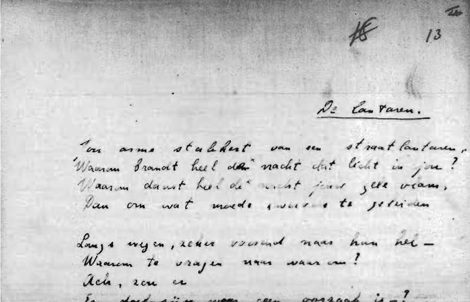 13
De Lantaren.
Jou arme stakkert van een straatlantaren,
Waarom brandt heel de nacht dat licht in jou?
Waarom danst heel de nacht jouw gele vlam,
Dan om wat moede zwervers te geleiden
Langs wegen, zeker voerend naar hun hel—
Waarom te vragen naar waarom?
Ach, zou er